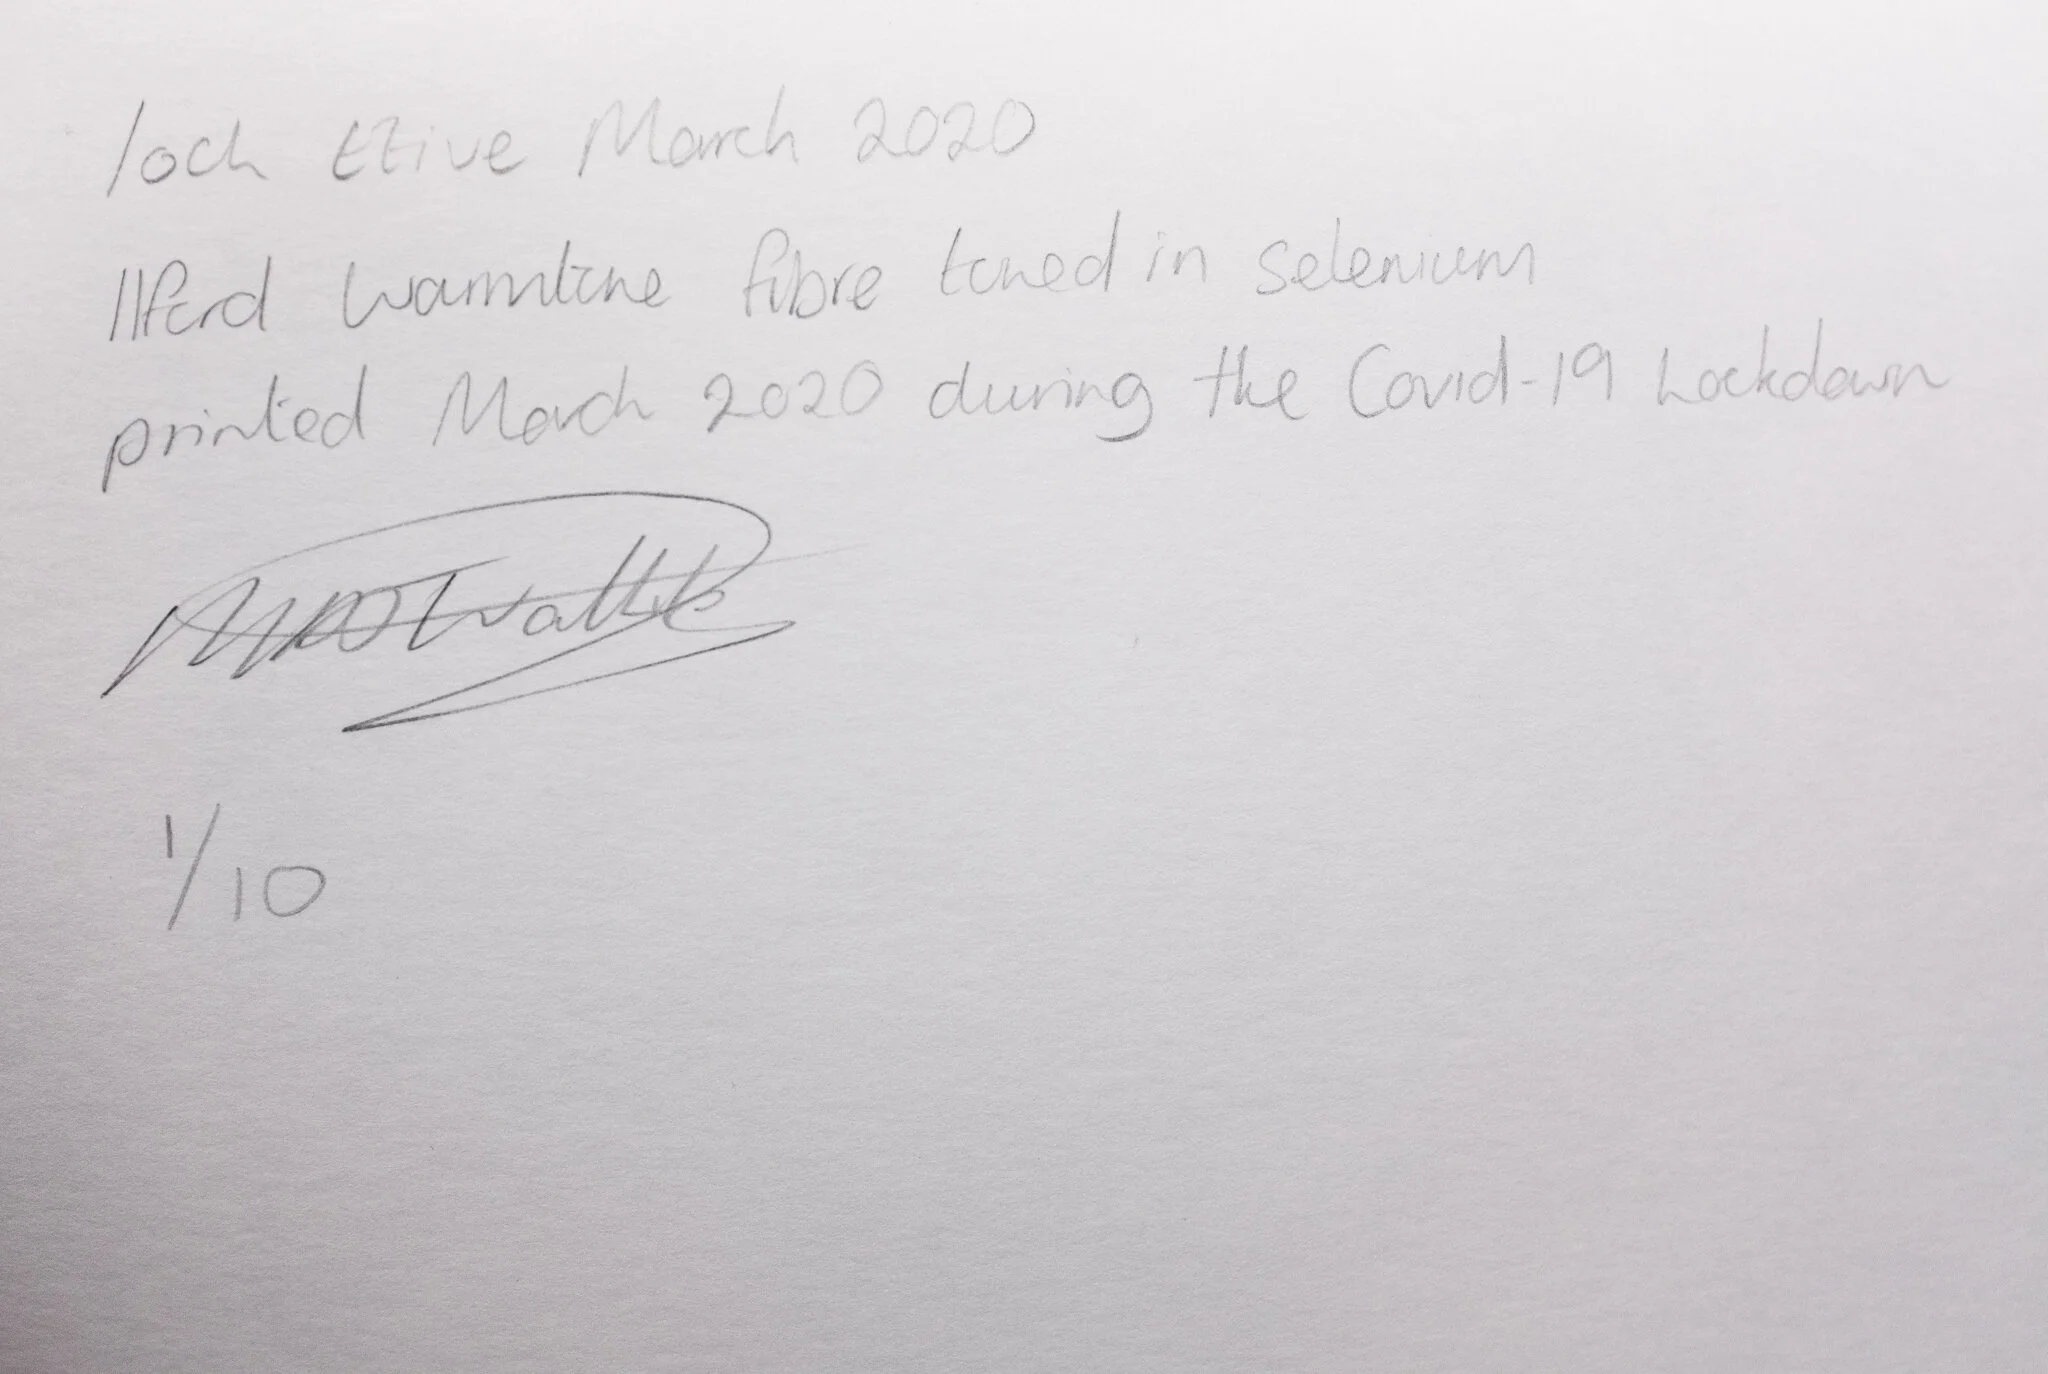 loch Etive March 2020
Ilford Warmtone fibre toned in selenium
printed March 2020 during the Covid-19 Lockdown
1/10